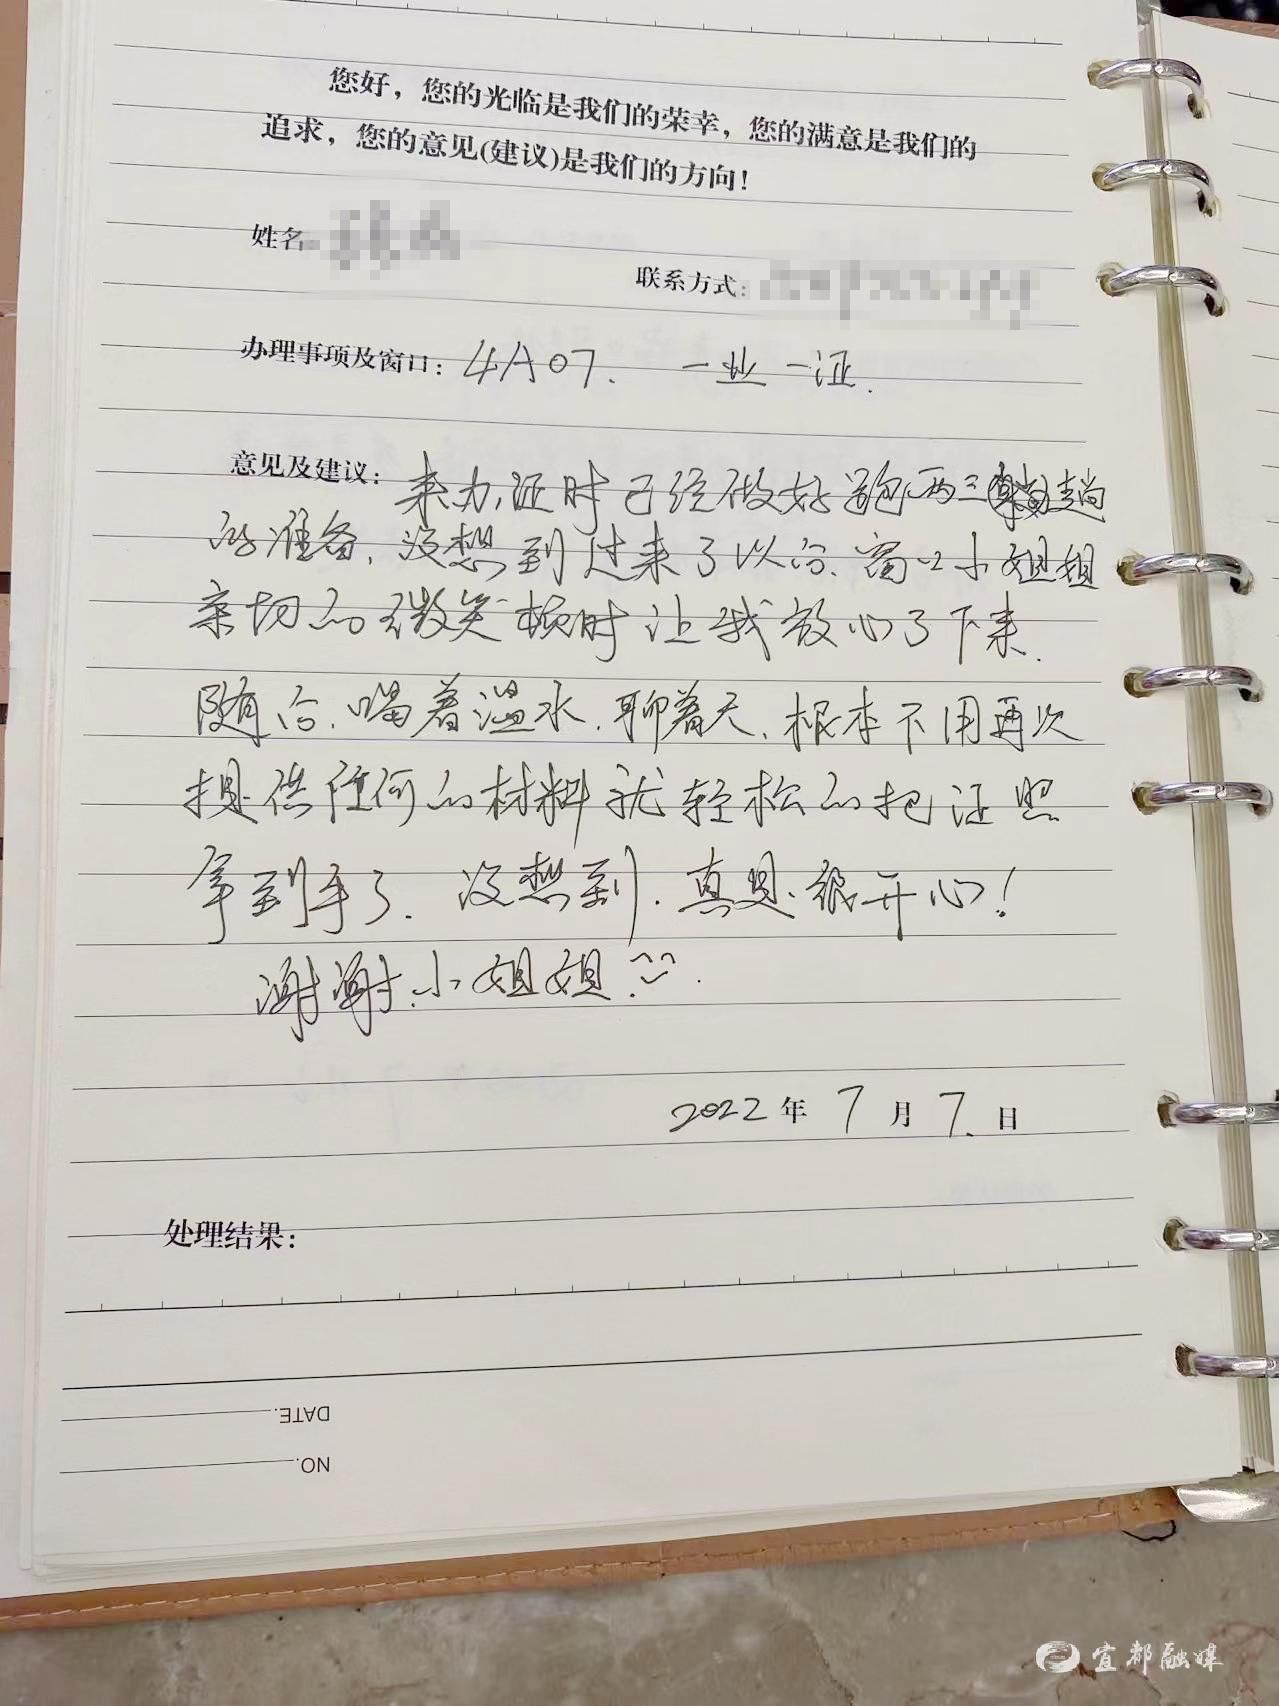 您好，您的光临是我们的荣幸，您的满意是我们的
追求，您的意见(建议)是我们的方向！
姓名
联系方式：
办理事项及窗口：4A07. 一业一证.
意见及建议：来办证时已经做好跑两三趟
的准备，没想到过来了以后、窗口小姐姐
亲切的微笑顿时让我放心了下来.
随后，喝着温水，聊着天、根本不用再次
提供任何的材料就轻松的把证照
拿到手了. 没想到. 真是很开心！
谢谢小姐姐.
2022年7月7日
处理结果：
DATE.
NO.
宜都融媒